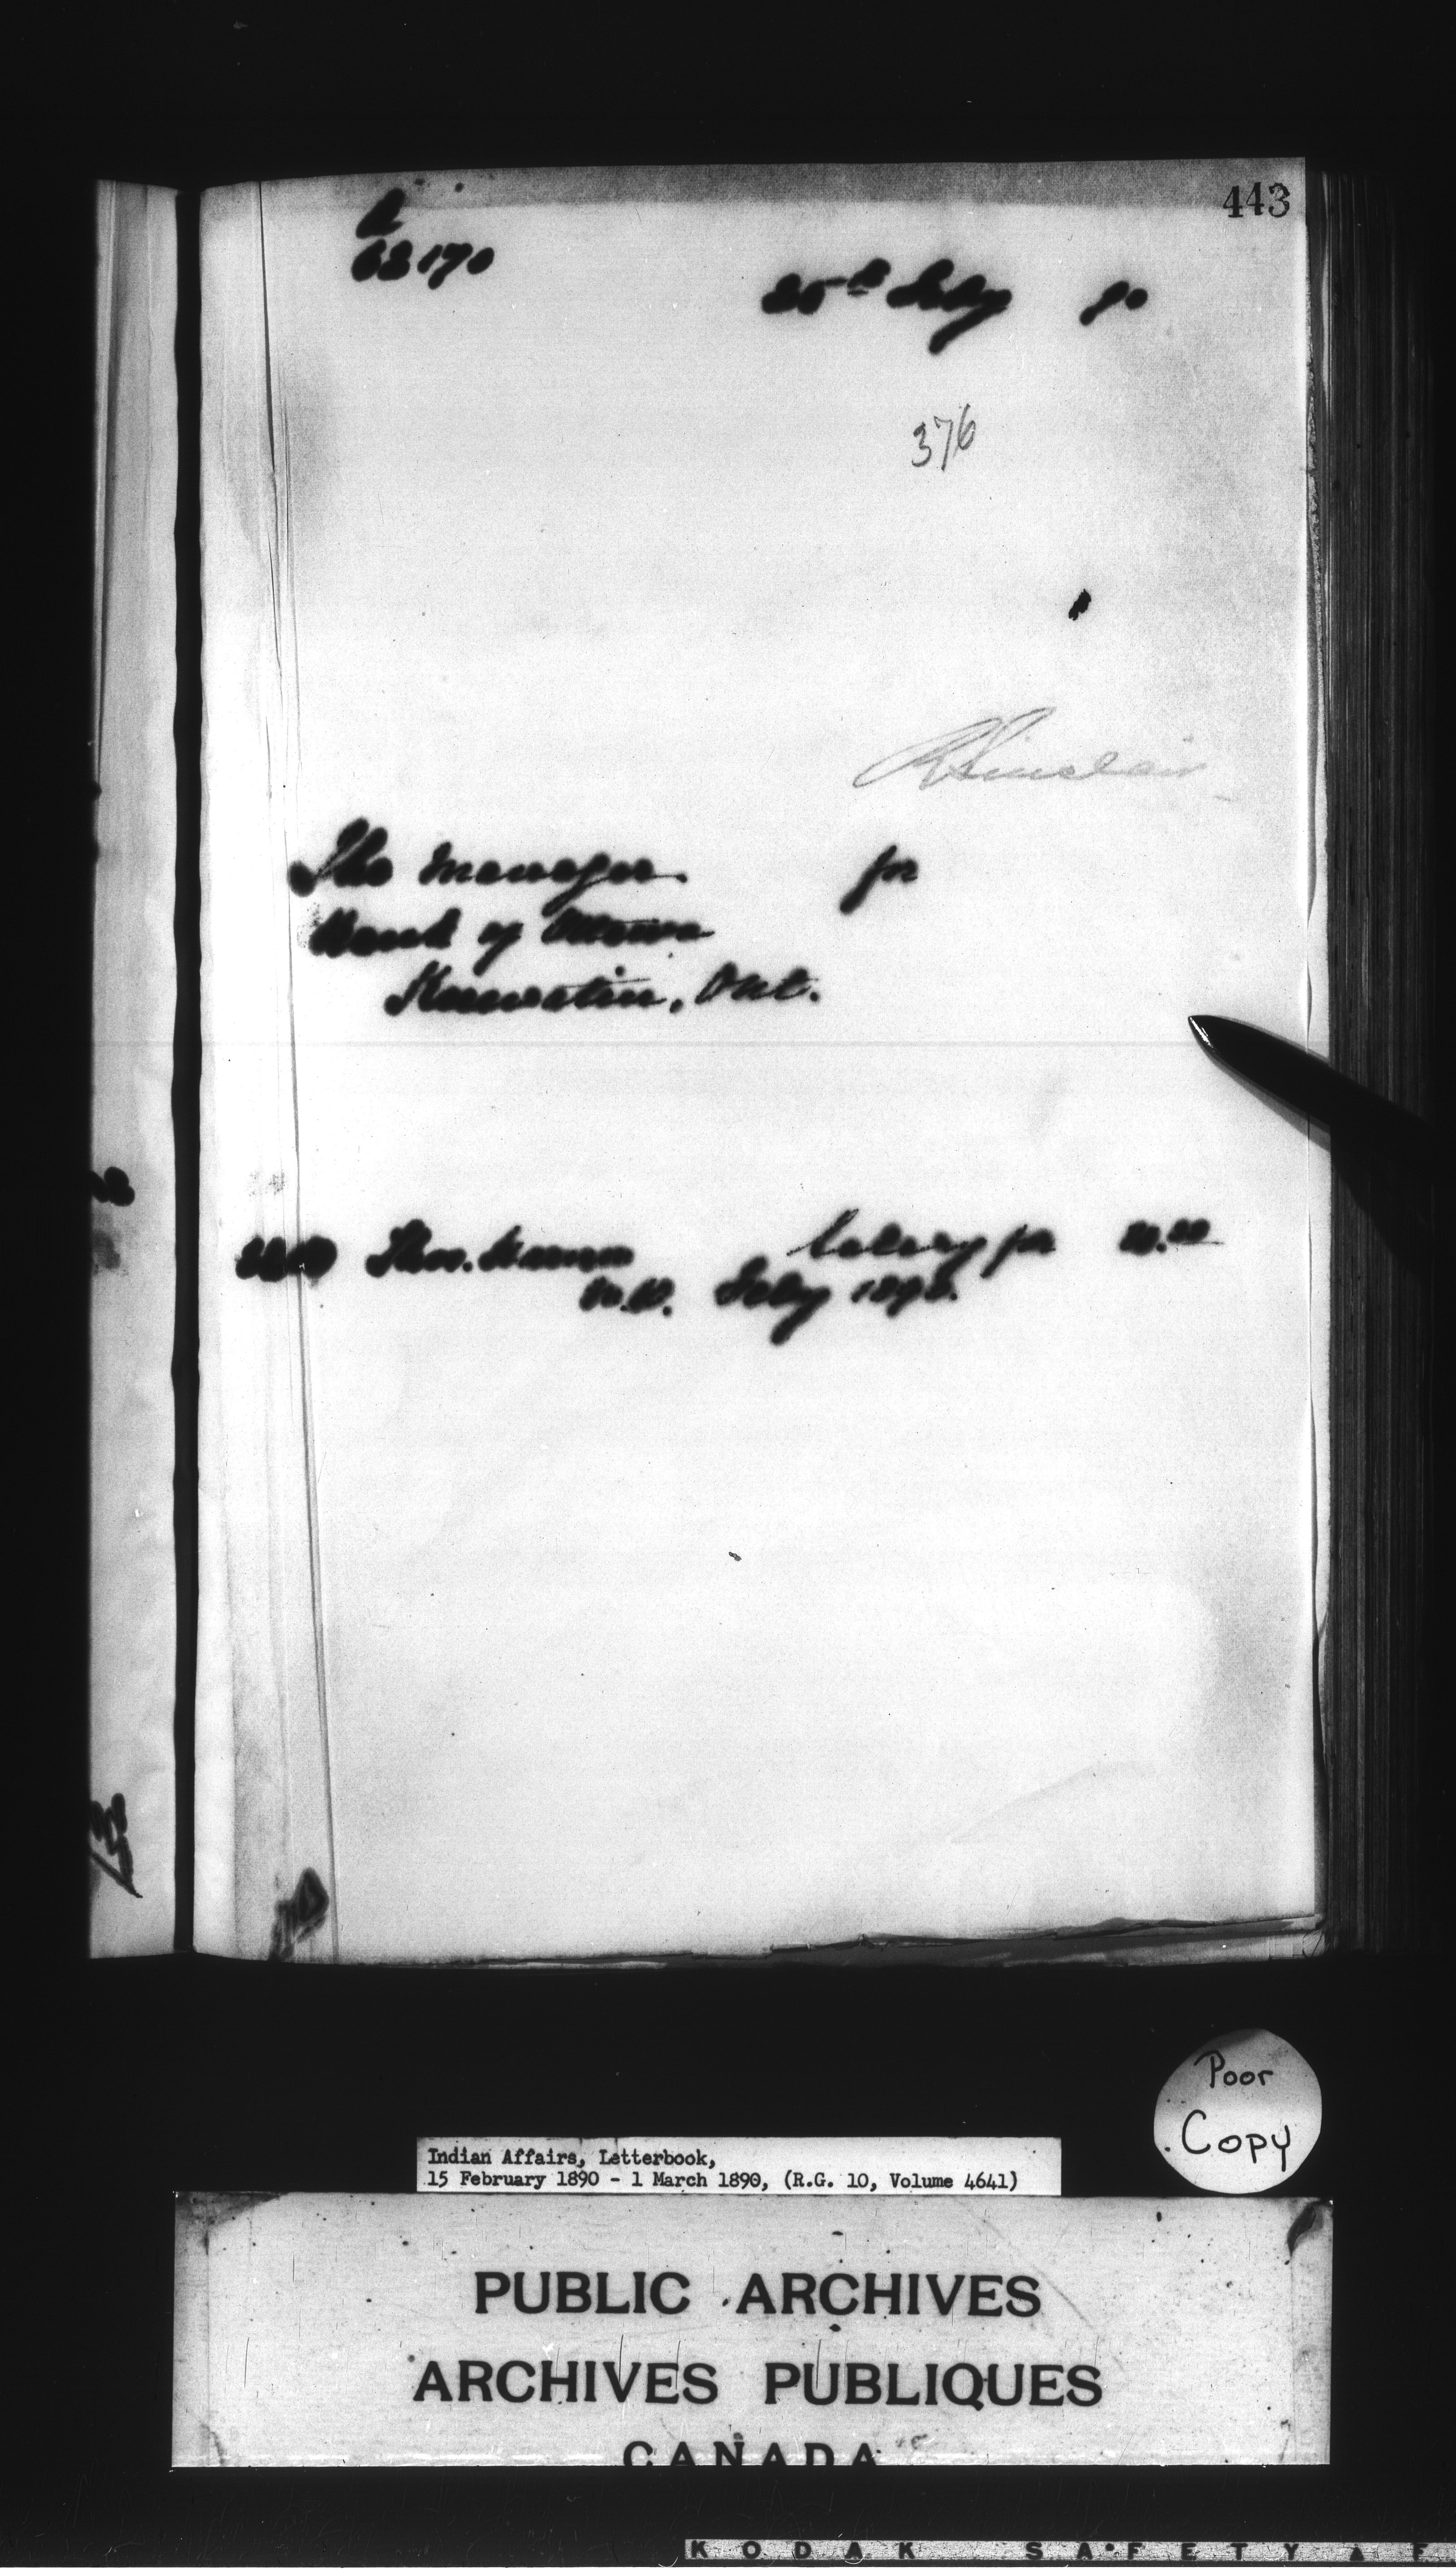 443
63170
25th Feby 90
376
R Sinclair
The Manager
for
Bank of Ottawa
Keewatin, Ont.
Thos. Salary for
Feby 1890.
Poor
Copy
Indian Affairs, Letterbook,
15 February 1890 - 1 March 1890, (R.G. 10, Volume 4641)
PUBLIC ARCHIVES
ARCHIVES PUBLIQUES
CANADA
KODAK SAFETY F